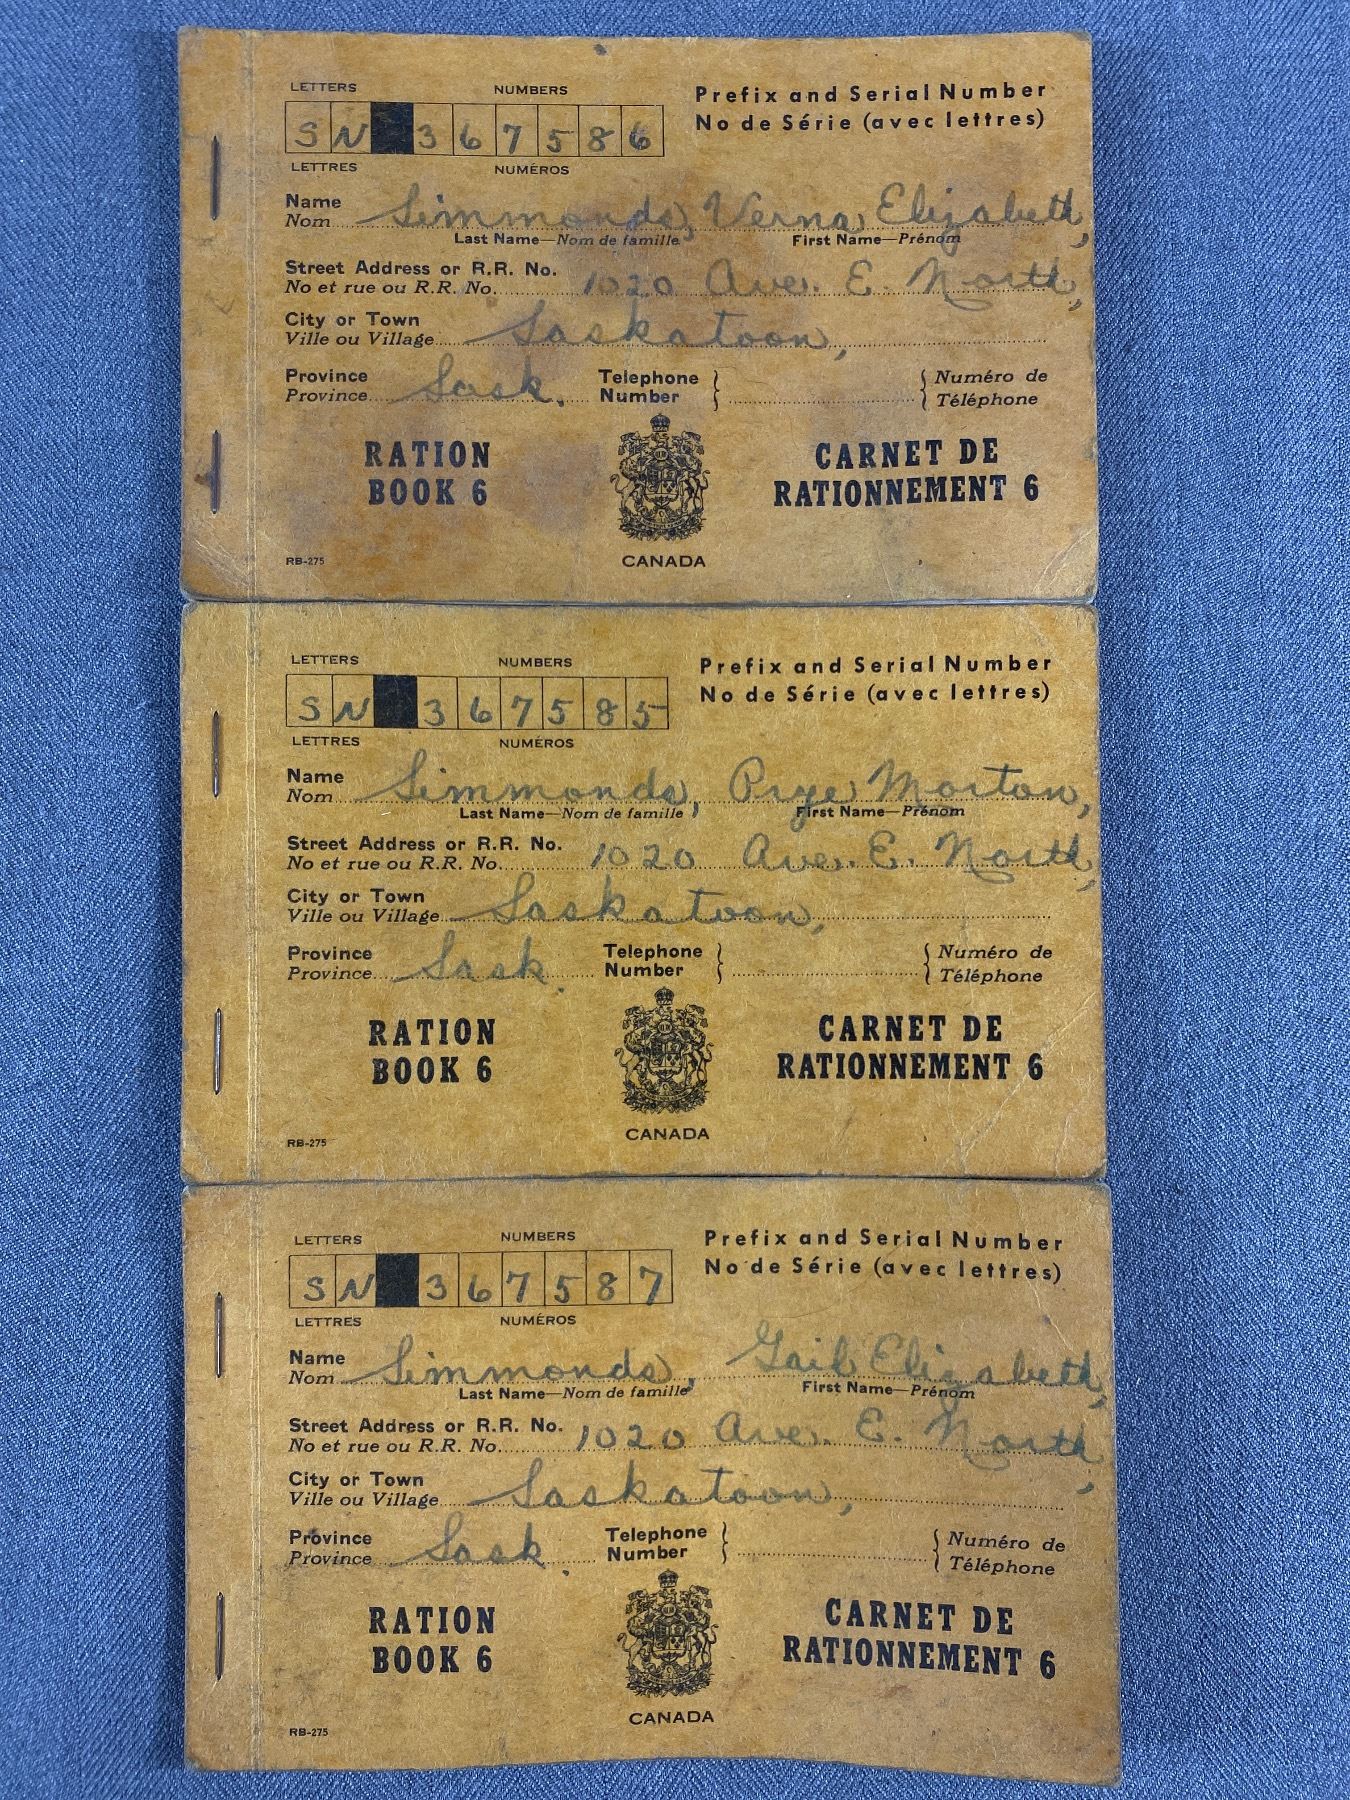 LETTERS NUMBERS
SN 367586
LETTRES NUMÉROS
Prefix and Serial Number
No de Série (avec lettres)
Name Simmonds, Verna Elizabeth,
Nom
Last Name—Nom de famille First Name—Prénom
Street Address or R.R. No. 1020 Ave. E. North,
No et rue ou R.R. No.
City or Town Saskatoon,
Ville ou Village
Province Sask. Telephone Numéro de
Province Number Téléphone
RATION CARNET DE
BOOK 6 RATIONNEMENT 6
RB-275 CANADA
LETTERS NUMBERS
SN 367585
LETTRES NUMÉROS
Prefix and Serial Number
No de Série (avec lettres)
Name Simmonds, Prye Morton,
Nom
Last Name—Nom de famille First Name—Prénom
Street Address or R.R. No. 1020 Ave. E. North,
No et rue ou R.R. No.
City or Town Saskatoon,
Ville ou Village
Province Sask. Telephone Numéro de
Province Number Téléphone
RATION CARNET DE
BOOK 6 RATIONNEMENT 6
RB-275 CANADA
LETTERS NUMBERS
SN 367587
LETTRES NUMÉROS
Prefix and Serial Number
No de Série (avec lettres)
Name Simmonds, Gail Elizabeth,
Nom
Last Name—Nom de famille First Name—Prénom
Street Address or R.R. No. 1020 Ave. E. North,
No et rue ou R.R. No.
City or Town Saskatoon,
Ville ou Village
Province Sask. Telephone Numéro de
Province Number Téléphone
RATION CARNET DE
BOOK 6 RATIONNEMENT 6
RB-275 CANADA